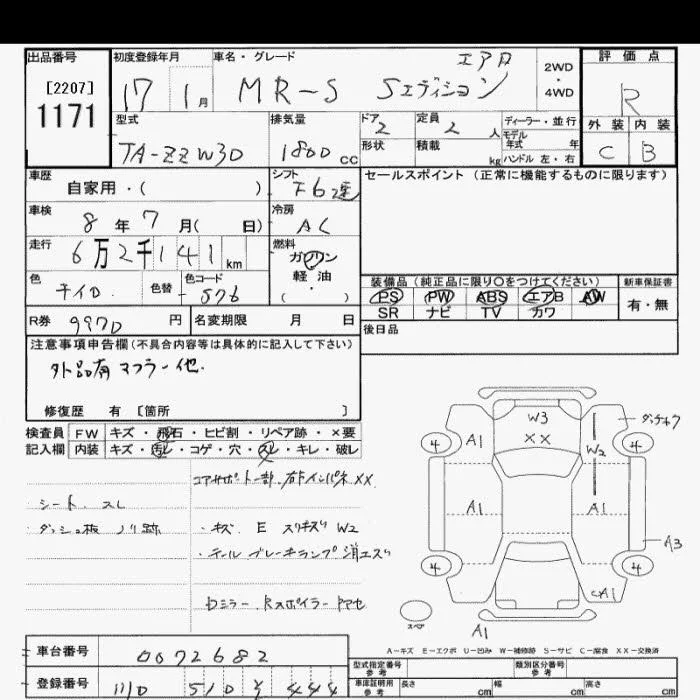 出品番号 初度登録年月 車名・グレード 評価点
[2207]
1171
17 1月 MR-S Sエディション エアロ
2WD
・
4WD
R
外装 内装
C B
型式 排気量 ドア 定員 ディーラー・並行
TA-ZZW30 1800cc 2 2人 モデル年式 年
形状 積載 kg ハンドル 左・右
車歴 シフト セールスポイント(正常に機能するものに限ります)
自家用・( ) F6速
車検 冷房
8年7月( 日) AC
走行 燃料
6万2千141km ガソリン
軽・油
( ・ )
色 色替 色コード
576
装備品(純正品に限り○をつけてください) 新車保証書
PS PW ABS エアB AW 有・無
SR ナビ TV カワ
R券 9970円 名変期限 月 日 後日品
注意事項申告欄(不具合内容等は具体的に記入して下さい)
外品有 マフラー他.
修復歴 有 [箇所 ]
検査員 FW キズ・飛石・ヒビ割・リペア跡・×要
記入欄 内装 キズ・汚レ・コゲ・穴・スレ・キレ・破レ
コアサポート一部. 右インパネ XX
シート. スレ
ダッシュ板 ノリ跡 ・キズ E スリキズ W2
・テール ブレーキランプ
Rスポイラー
W3
XX
A1
W2
4
4
A1
A1
A3
4
4
A1
スペア
A1
A-キズ E-エクボ U-凹み W-補修跡 S-サビ C-腐食 XX-交換済
車台番号 0072682
登録番号
型式指定番号 参考 類別区分番号 参考
車庫証明用 参考 長さ cm 幅 cm 高さ cm